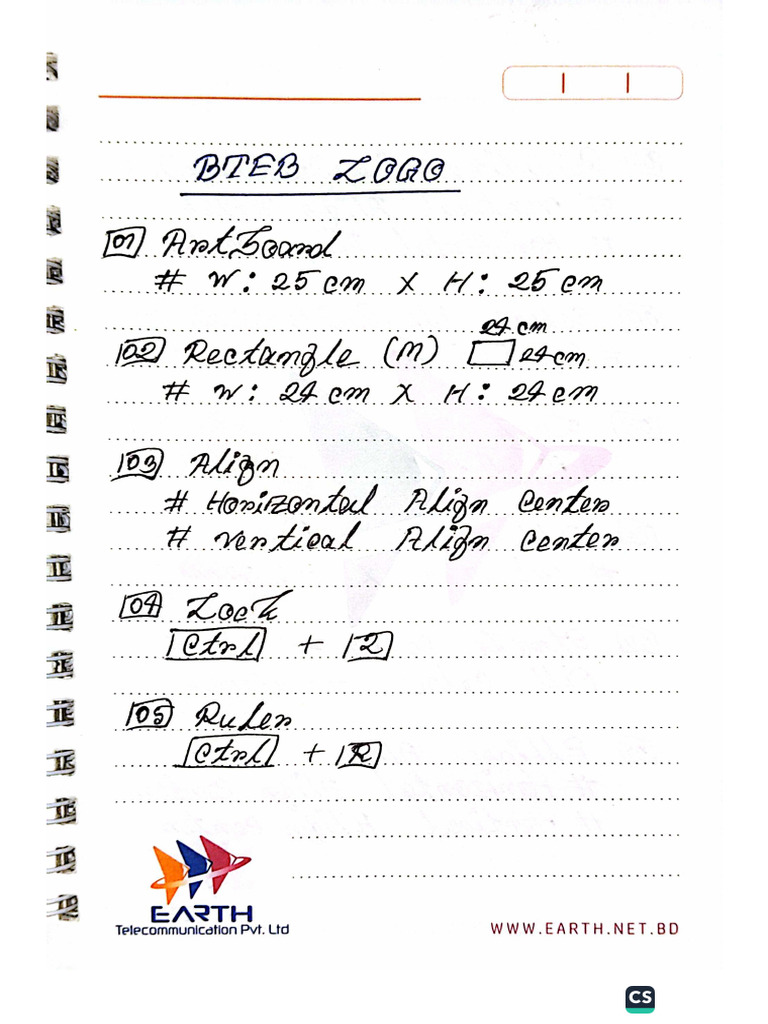 BTEB LOGO
01 Artboard
# W: 25 cm X H: 25 cm
24 cm
02 Rectangle (M) 24 cm
# W: 24 cm X H: 24 cm
03 Align
# Horizontal Align Center
# Vertical Align Center
04 Lock
Ctrl + 2
05 Ruler
Ctrl + R
EARTH
Telecommunication Pvt. Ltd
WWW.EARTH.NET.BD
CS